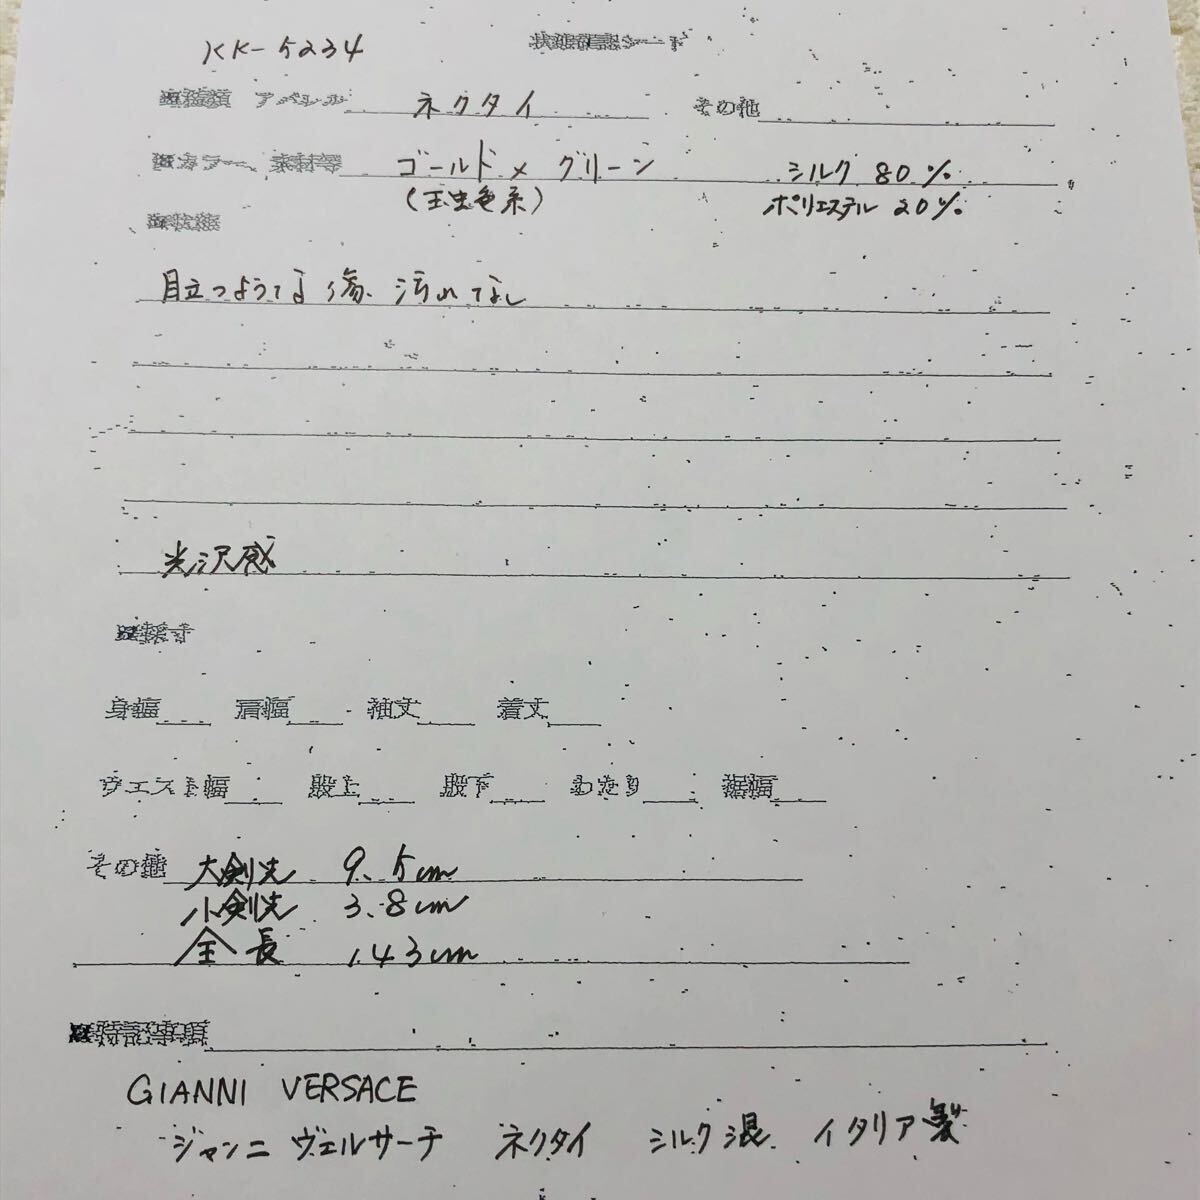 KK-5234
状態確認シート
■種類 アパレル ネクタイ その他
■カラー、素材等 ゴールド × グリーン シルク 80%
(玉虫色系) ポリエステル 20%
■状態
目立つような傷、汚れなし
光沢感
■採寸
身幅 肩幅 袖丈 着丈
ウエスト幅 股上 股下 わたり 裾幅
その他 大剣先 9.5cm
小剣先 3.8cm
全長 143cm
■特記事項
GIANNI VERSACE
ジャンニ ヴェルサーチ ネクタイ シルク混 イタリア製